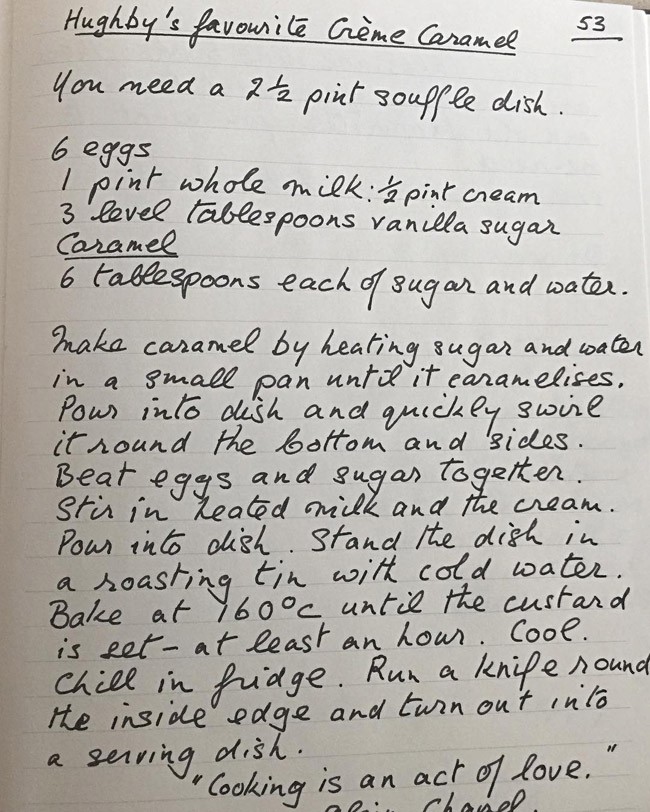 Hughby's favourite Crème Caramel 53
You need a 2½ pint souffle dish.
6 eggs
1 pint whole milk: ½ pint cream
3 level tablespoons vanilla sugar
Caramel
6 tablespoons each of sugar and water.
Make caramel by heating sugar and water
in a small pan until it caramelises.
Pour into dish and quickly swirl
it round the bottom and sides.
Beat eggs and sugar together.
Stir in heated milk and the cream.
Pour into dish. Stand the dish in
a roasting tin with cold water.
Bake at 160°c until the custard
is set - at least an hour. Cool.
Chill in fridge. Run a knife round
the inside edge and turn out into
a serving dish.
"Cooking is an act of love."
Chanel.